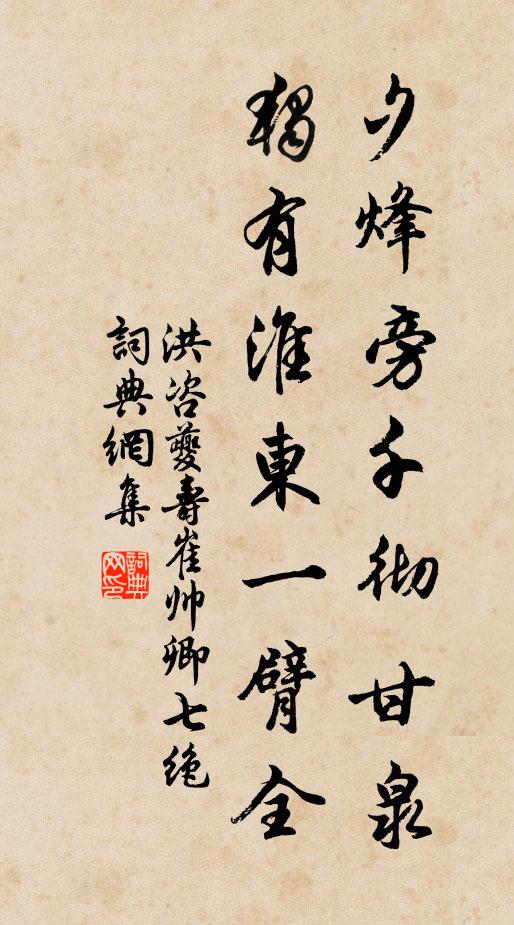 夕烽旁千彻甘泉
独有淮東一臂全
洪咨夔壽崔帅卿七绝
詞典網集
詞典网印